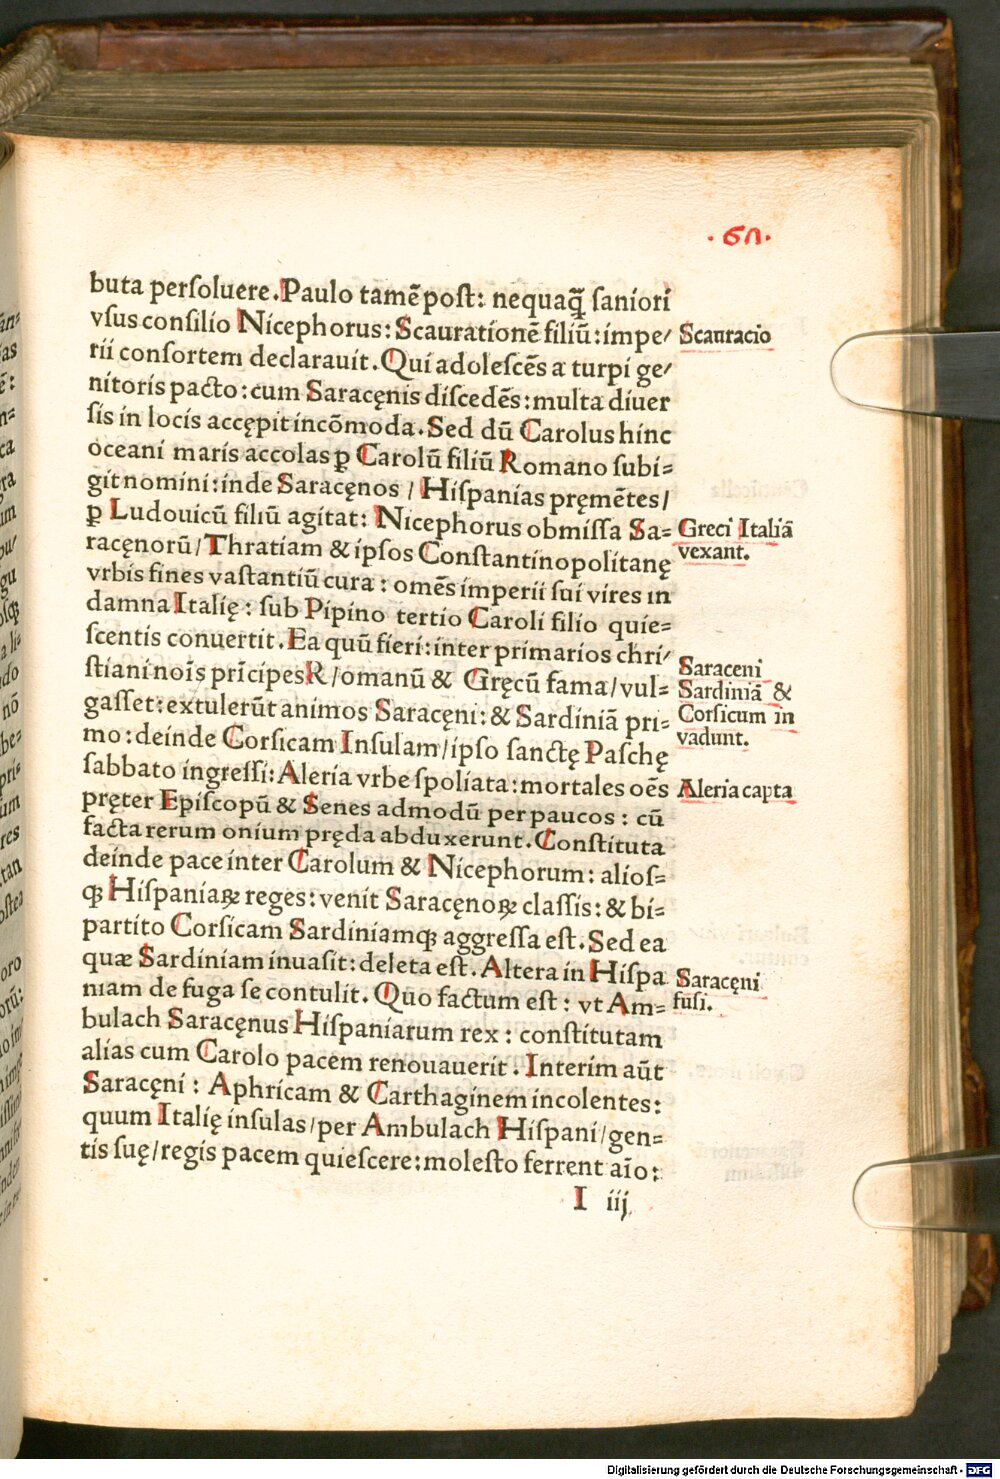 ·67·
buta perſoluere. Paulo tamē poſt: nequaq̄ ſaniori
vſus conſilio Nicephorus: Scaurationē filiū: impe/
Scauracio
rii conſortem declarauit. Qui adoleſcēs a turpi ge/
nitoris pacto: cum Saracęnis diſcedēs: multa diuer
ſis in locis accępit incōmoda. Sed dū Carolus hinc
oceani maris accolas ꝑ Carolū filiū Romano ſubi=
git nomini: inde Saracęnos / Hiſpanias pręmētes/
ꝑ Ludouicū filiū agitat: Nicephorus obmiſſa Sa=
Greci Italiā
racęnorū/ Thratiam & ipſos Conſtantinopolitanę
vexant.
vrbis fines vaſtantiū cura: omēs imperii ſui vires in
damna Italię: ſub Pipino tertio Caroli filio quie=
ſcentis conuertit. Ea quū fieri: inter primarios chri/
Saraceni
ſtiani noīs prīcipes R/omanū & Gręcū fama/ vul=
Sardiniā &
gaſſet: extulerūt animos Saracęni: & Sardiniā pri=
Corſicum in
mo: deinde Corſicam Inſulam/ ipſo ſanctę Paſchę
vadunt.
ſabbato ingreſſi: Aleria vrbe ſpoliata: mortales oēs
Aleria capta
pręter Epiſcopū & Senes admodū per paucos: cū
facta rerum onium pręda abduxerunt. Conſtituta
deinde pace inter Carolum & Nicephorum: alioſ=
qꝫ Hiſpaniaꝝ reges: venit Saracęnoꝝ claſſis: & bi=
partito Corſicam Sardiniamqꝫ aggreſſa eſt. Sed ea
quæ Sardiniam inuaſit: deleta eſt. Altera in Hiſpa
Saracęni
niam de fuga ſe contulit. Quo factum eſt: vt Am=
fuſi.
bulach Saracęnus Hiſpaniarum rex: conſtitutam
alias cum Carolo pacem renouauerit. Interim aūt
Saracęni: Aphricam & Carthaginem incolentes:
quum Italię inſulas/ per Ambulach Hiſpani/ gen=
tis ſuę/ regis pacem quieſcere: moleſto ferrent aīo:
I iij
Digitalisierung gefördert durch die Deutsche Forschungsgemeinschaft - DFG